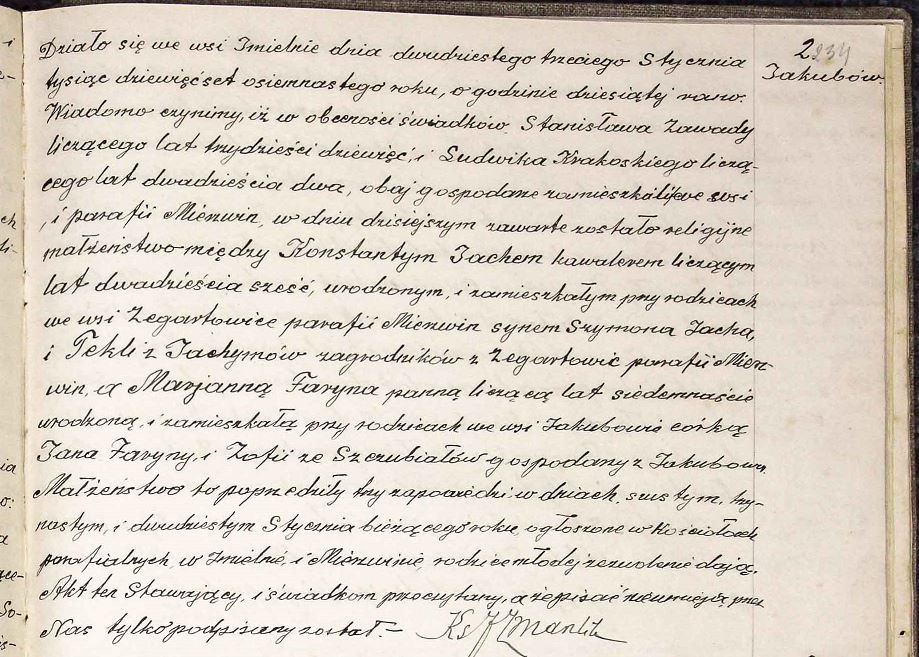 2
234
Jakubów.
Działo się we wsi Imielnie dnia dwudziestego trzeciego Stycznia
tysiąc dziewięćset osiemnastego roku, o godzinie dziesiątej rano.
Wiadomo czynimy, iż w obecności świadków Stanisława Zawady
liczącego lat trzydzieści dziewięć, i Ludwika Krakoskiego liczą-
cego lat dwadzieścia dwa, obaj gospodarze zamieszkali we wsi
, i parafii Mierzwin, w dniu dzisiejszym zawarte zostało religijne
małżeństwo między Konstantym Jachem kawalerem liczącym
lat dwadzieścia sześć, urodzonym, i zamieszkałym przy rodzicach
we wsi Zegartowice parafii Mierzwin synem Szymona Jacha,
i Tekli z Jachymów zagrodników z Zegartowic parafii Mierz-
win, a Marjanną Faryna panną liczącą lat siedemnaście
urodzoną, i zamieszkałą przy rodzicach we wsi Jakubowie córką
Jana Faryny, i Zofii ze Szczubiałów gospodarzy z Jakubowa
Małżeństwo to poprzedziły trzy zapowiedzi w dniach szustym, trzy-
nastym, i dwudziestym Stycznia bieżącego roku, ogłoszone w Kościołach
parafialnych, w Imielnie, i Mierzwinie, rodzice młodej zezwolenie dają.
Akt ten Stawający, i świadkom przeczytany, a że pisać nieumieją, przez
Nas tylko podpisany został. –
Ks J